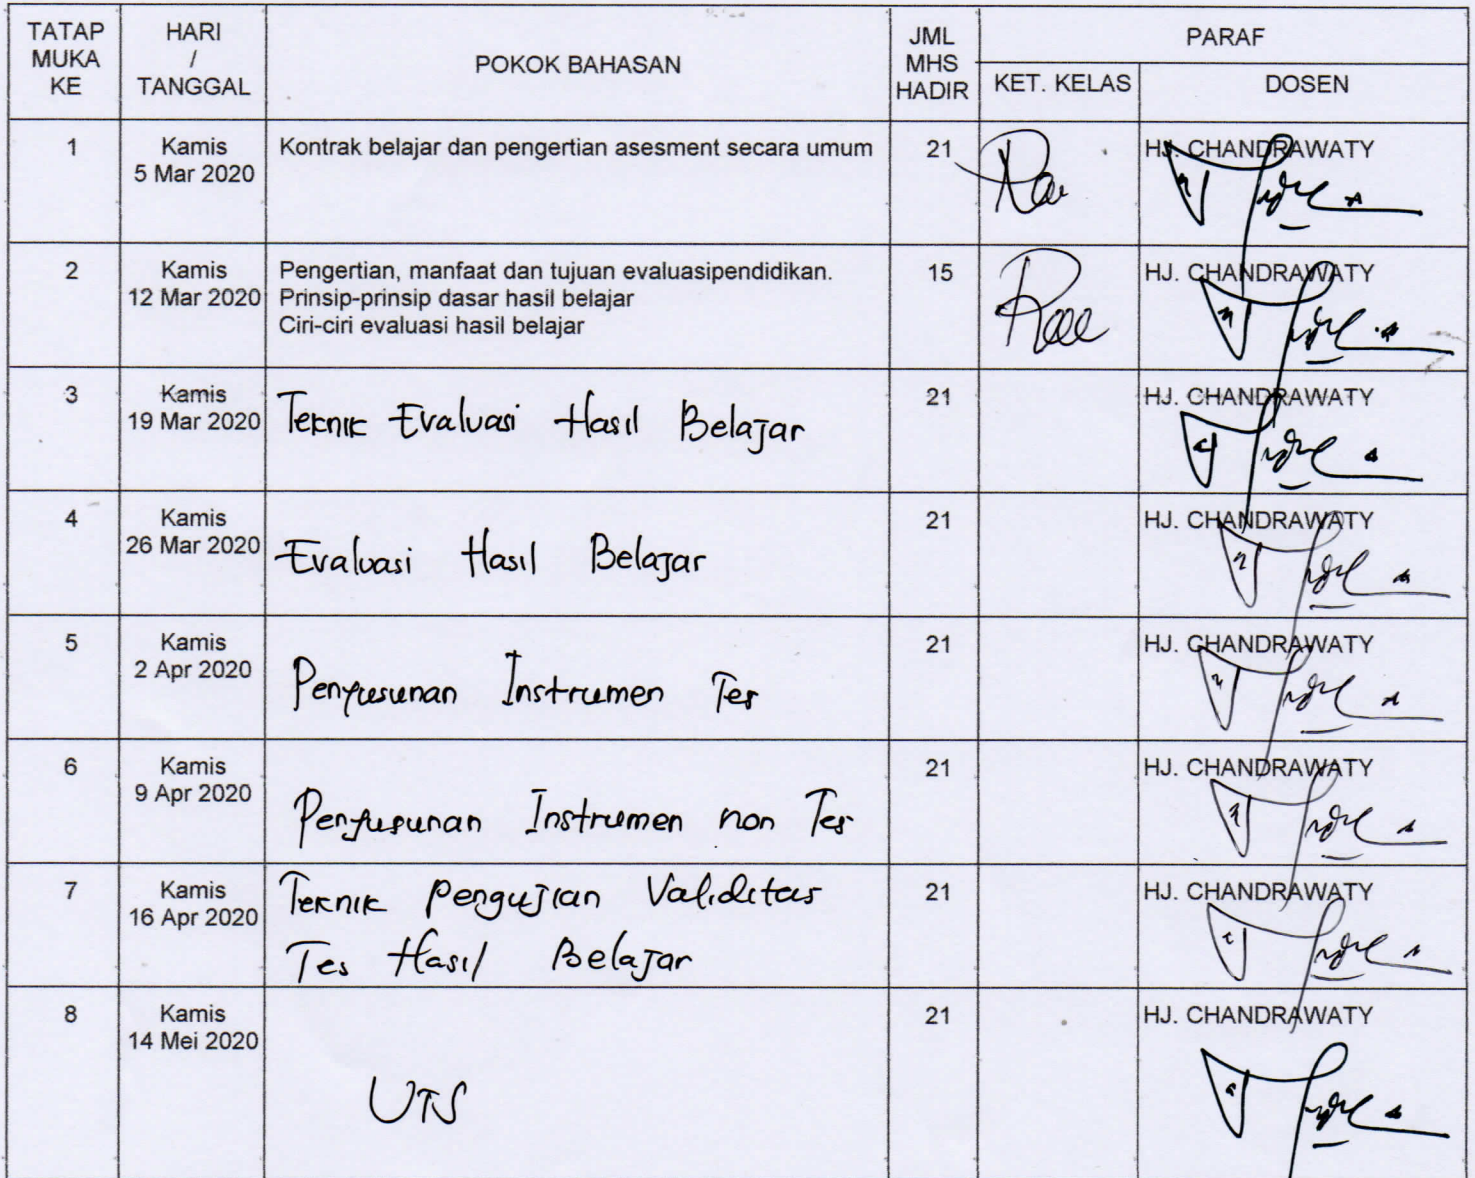 TATAP MUKA KE
HARI / TANGGAL
POKOK BAHASAN
JML MHS HADIR
PARAF
KET. KELAS
DOSEN
1
Kamis
5 Mar 2020
Kontrak belajar dan pengertian asesment secara umum
21
HJ. CHANDRAWATY
2
Kamis
12 Mar 2020
Pengertian, manfaat dan tujuan evaluasipendidikan.
Prinsip-prinsip dasar hasil belajar
Ciri-ciri evaluasi hasil belajar
15
HJ. CHANDRAWATY
3
Kamis
19 Mar 2020
Teknik Evaluasi Hasil Belajar
21
HJ. CHANDRAWATY
4
Kamis
26 Mar 2020
Evaluasi Hasil Belajar
21
HJ. CHANDRAWATY
5
Kamis
2 Apr 2020
Penyusunan Instrumen Tes
21
HJ. CHANDRAWATY
6
Kamis
9 Apr 2020
Penyusunan Instrumen non Tes
21
HJ. CHANDRAWATY
7
Kamis
16 Apr 2020
Teknik pengujian Validitas
Tes Hasil Belajar
21
HJ. CHANDRAWATY
8
Kamis
14 Mei 2020
UTS
21
HJ. CHANDRAWATY